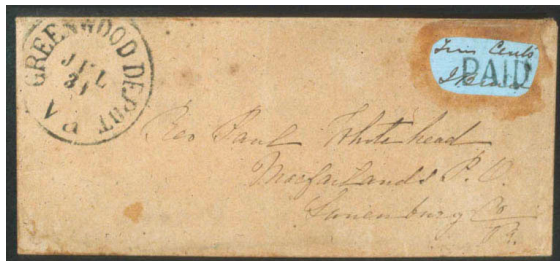 GREENWOOD DEPOT
JUL
31
VA
Cents
PAID
Rev Paul Whitehead
Macfarlands P. O.
Lunenburg Co
Va.